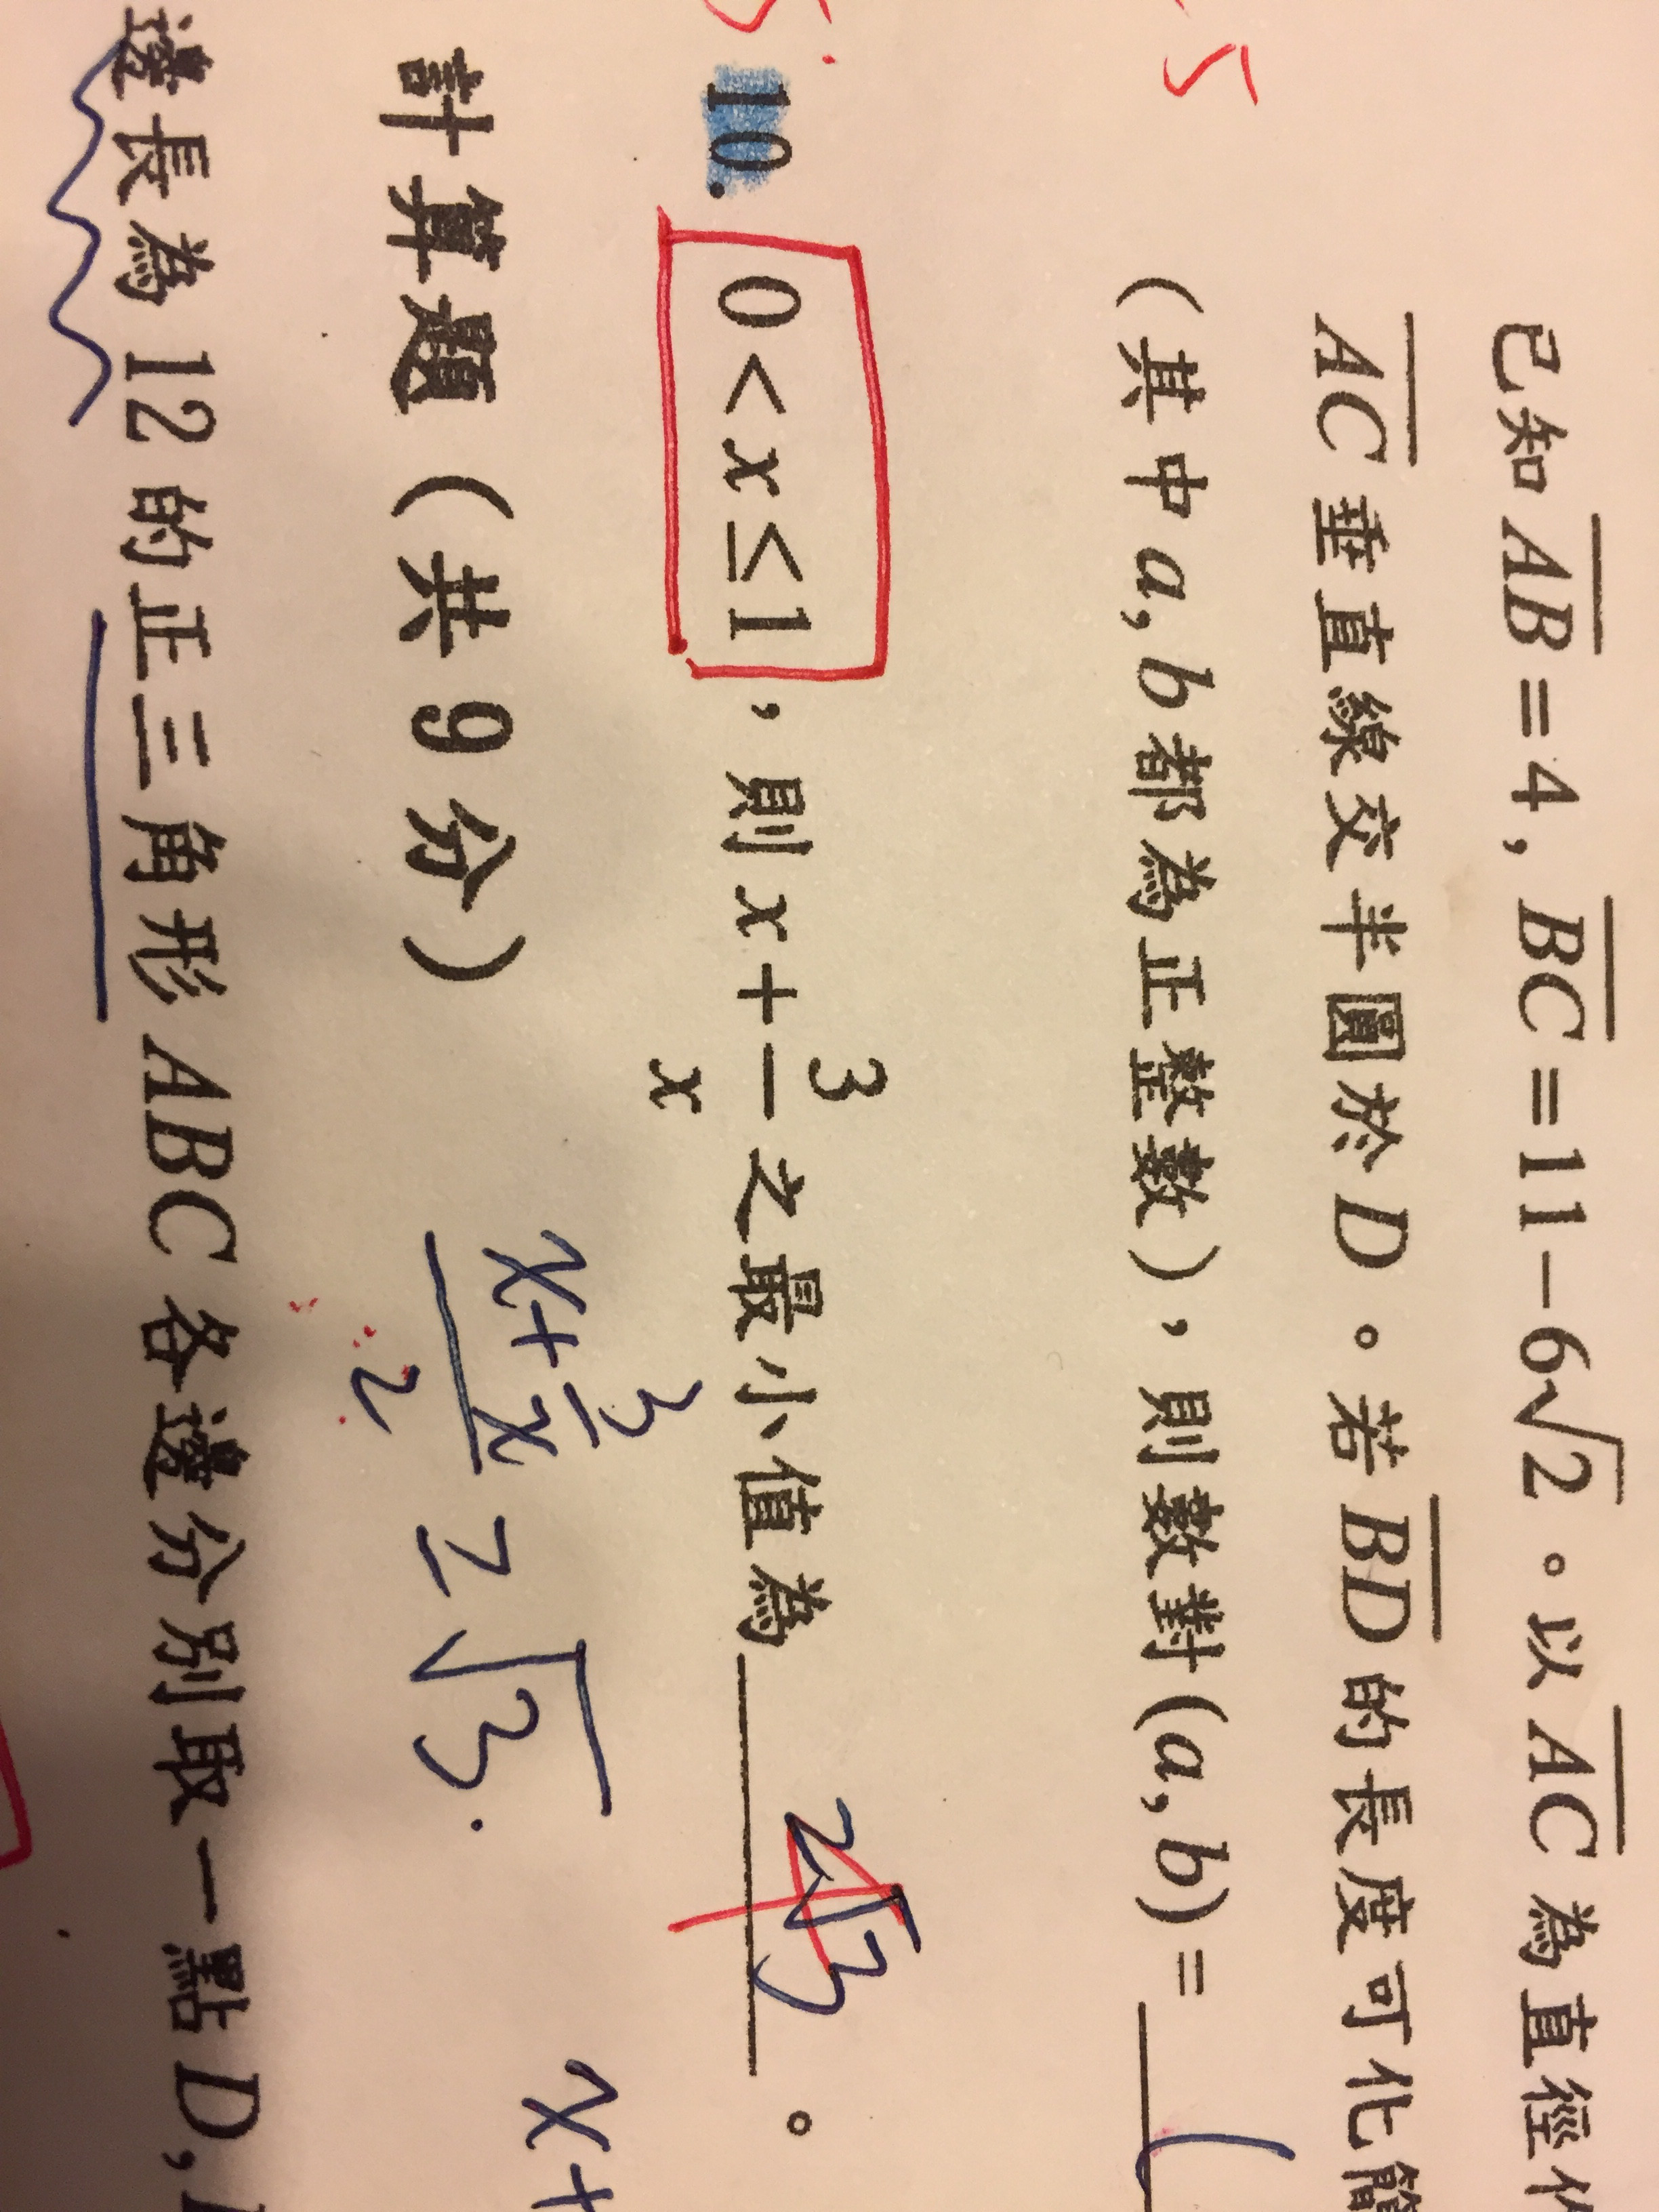 已知 AB = 4, BC = 11 − 6√2。以 AC 為直徑
AC 垂直線交半圓於 D。若 BD 的長度可化簡
(其中 a, b 都為正整數),則數對(a, b) =
5
10. 0 < x ≤ 1,則 x + 3/x 之最小值為 2√3 。
計算題(共 9 分)
(x + 3/x)/2 ≥ √3.
x+
邊長為 12 的正三角形 ABC 各邊分別取一點 D,